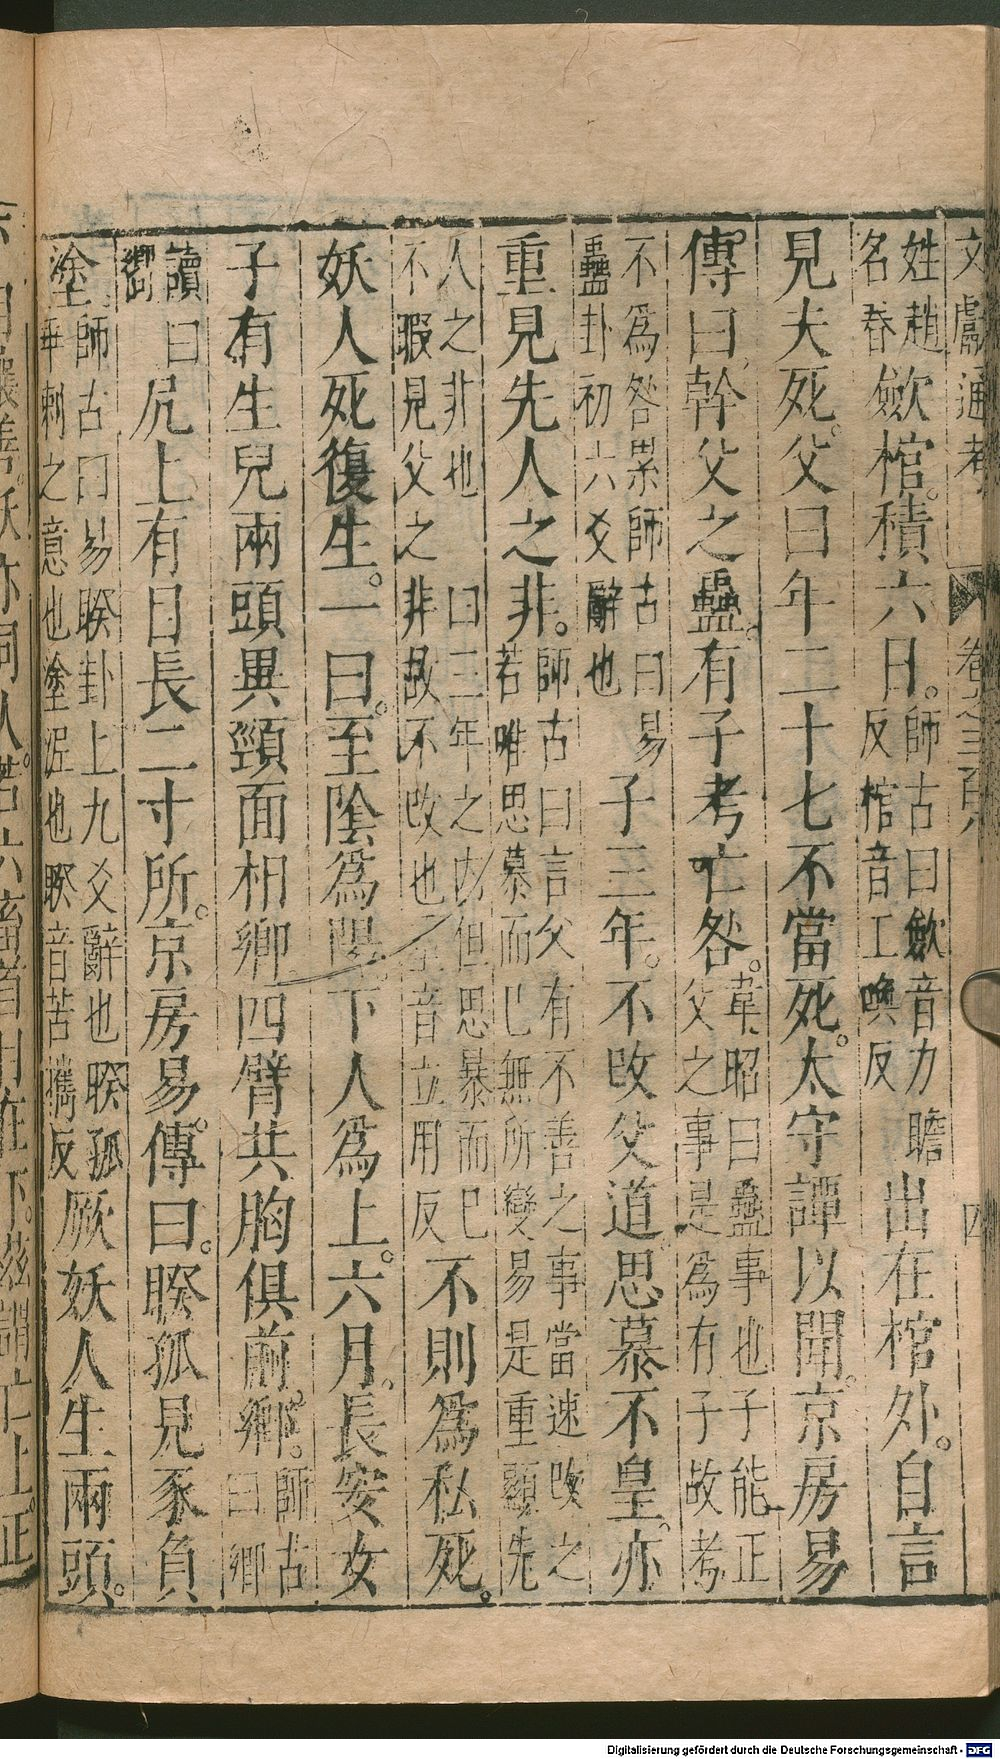 文獻通考 卷之三百 四
姓趙名春斂棺積六日師古曰斂音力贍反棺音工喚反出在棺外自言
見夫死父曰年二十七不當死太守譚以聞京房易
傳曰幹父之蠱有子考亡咎韋昭曰蠱事也子能正父之事是爲有子故考
不爲咎累師古曰易蠱卦初六爻辭也子三年不改父道思慕不皇亦
重見先人之非師古曰言父有不善之事當速改之若唯思慕而已無所變易是重顯先
人之非也一曰三年之內但思慕而已不暇見父之非故不改也重音直用反不則爲私死
妖人死復生一曰至陰爲陽下人爲上六月長安女
子有生兒兩頭異頸面相鄉四臂共胸俱前鄉師古曰鄉
讀曰嚮尻上有目長二寸所京房易傳曰睽孤見豕負
塗師古曰易睽卦上九爻辭也睽孤乖剌之意也塗泥也睽音苦攜反厥妖人生兩頭
Digitalisierung gefördert durch die Deutsche Forschungsgemeinschaft - DFG